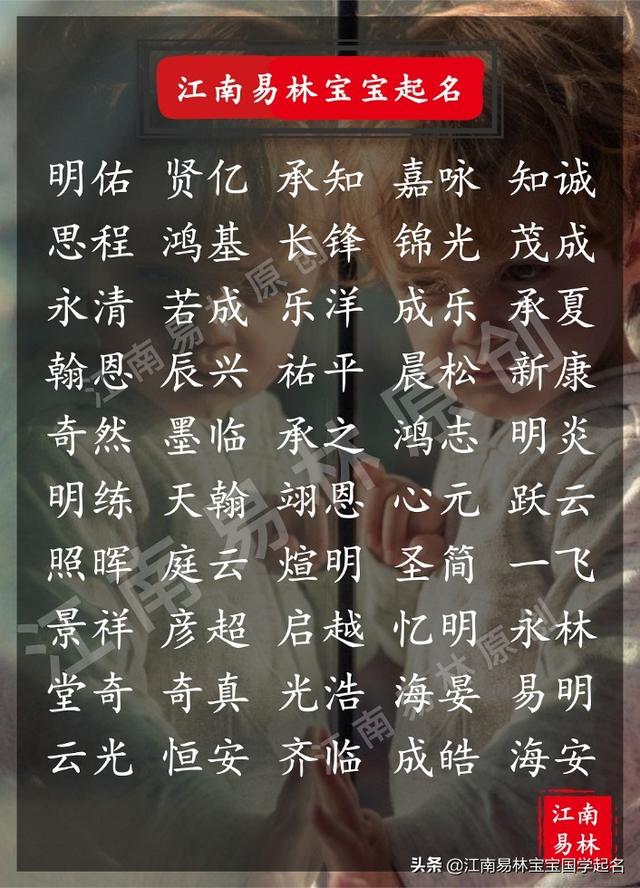 江南易林宝宝起名
明佑 贤亿 承知 嘉咏 知诚
思程 鸿基 长锋 锦光 茂成
永清 若成 乐洋 成乐 承夏
翰恩 辰兴 祐平 晨松 新康
奇然 墨临 承之 鸿志 明炎
明练 天翰 翊恩 心元 跃云
照晖 庭云 煊明 圣简 一飞
景祥 彦超 启越 忆明 永林
堂奇 奇真 光浩 海晏 易明
云光 恒安 齐临 成皓 海安
江南易林原创
江南易林原创
江南易林原创
江南
易林
头条 @江南易林宝宝国学起名